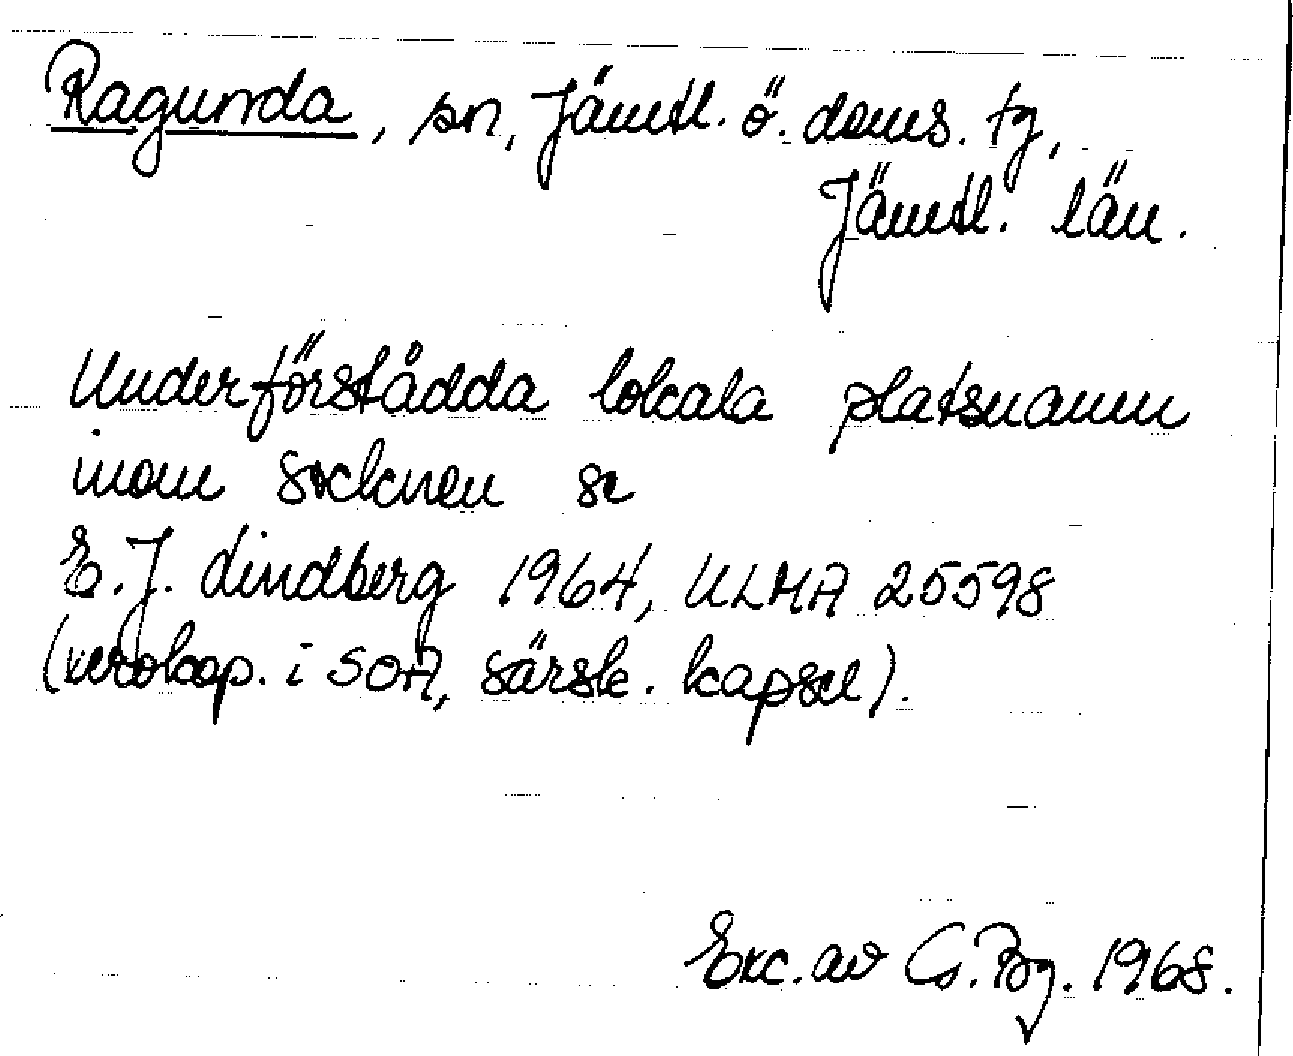 Ragunda, sn, Jämtl. ö. doms. tg,
Jämtl. län.
Underförstådda lokala platsnamn
inom socknen se
E. J. Lindberg 1964, ULMA 25598
(xeroxkop. i SOA, särsk. kapsel).
Exc. av G. Bg. 1968.